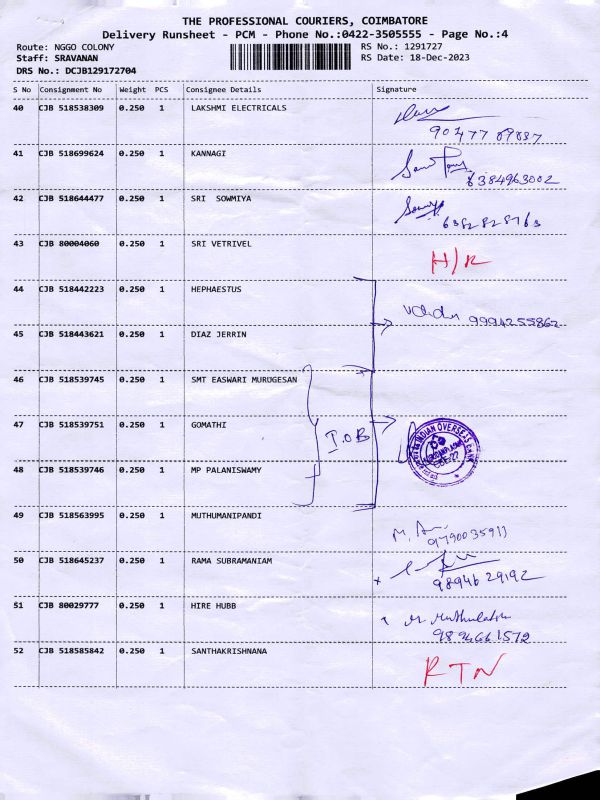 THE PROFESSIONAL COURIERS, COIMBATORE
Delivery Runsheet - PCM - Phone No.:0422-3505555 - Page No.:4
Route: NGGO COLONY RS No.: 1291727
Staff: SRAVANAN RS Date: 18-Dec-2023
DRS No.: DCJB129172704
S No Consignment No Weight PCS Consignee Details Signature
40 CJB 518538309 0.250 1 LAKSHMI ELECTRICALS
41 CJB 518699624 0.250 1 KANNAGI 6384963002
42 CJB 518644477 0.250 1 SRI SOWMIYA
43 CJB 80004060 0.250 1 SRI VETRIVEL H/R
44 CJB 518442223 0.250 1 HEPHAESTUS
9994255862
45 CJB 518443621 0.250 1 DIAZ JERRIN
46 CJB 518539745 0.250 1 SMT EASWARI MURUGESAN
47 CJB 518539751 0.250 1 GOMATHI I.O.B INDIAN OVERSEAS BANK
48 CJB 518539746 0.250 1 MP PALANISWAMY
49 CJB 518563995 0.250 1 MUTHUMANIPANDI
9790035911
50 CJB 518645237 0.250 1 RAMA SUBRAMANIAM
9894629192
51 CJB 80029777 0.250 1 HIRE HUBB
9894661572
52 CJB 518585842 0.250 1 SANTHAKRISHNANA RTN